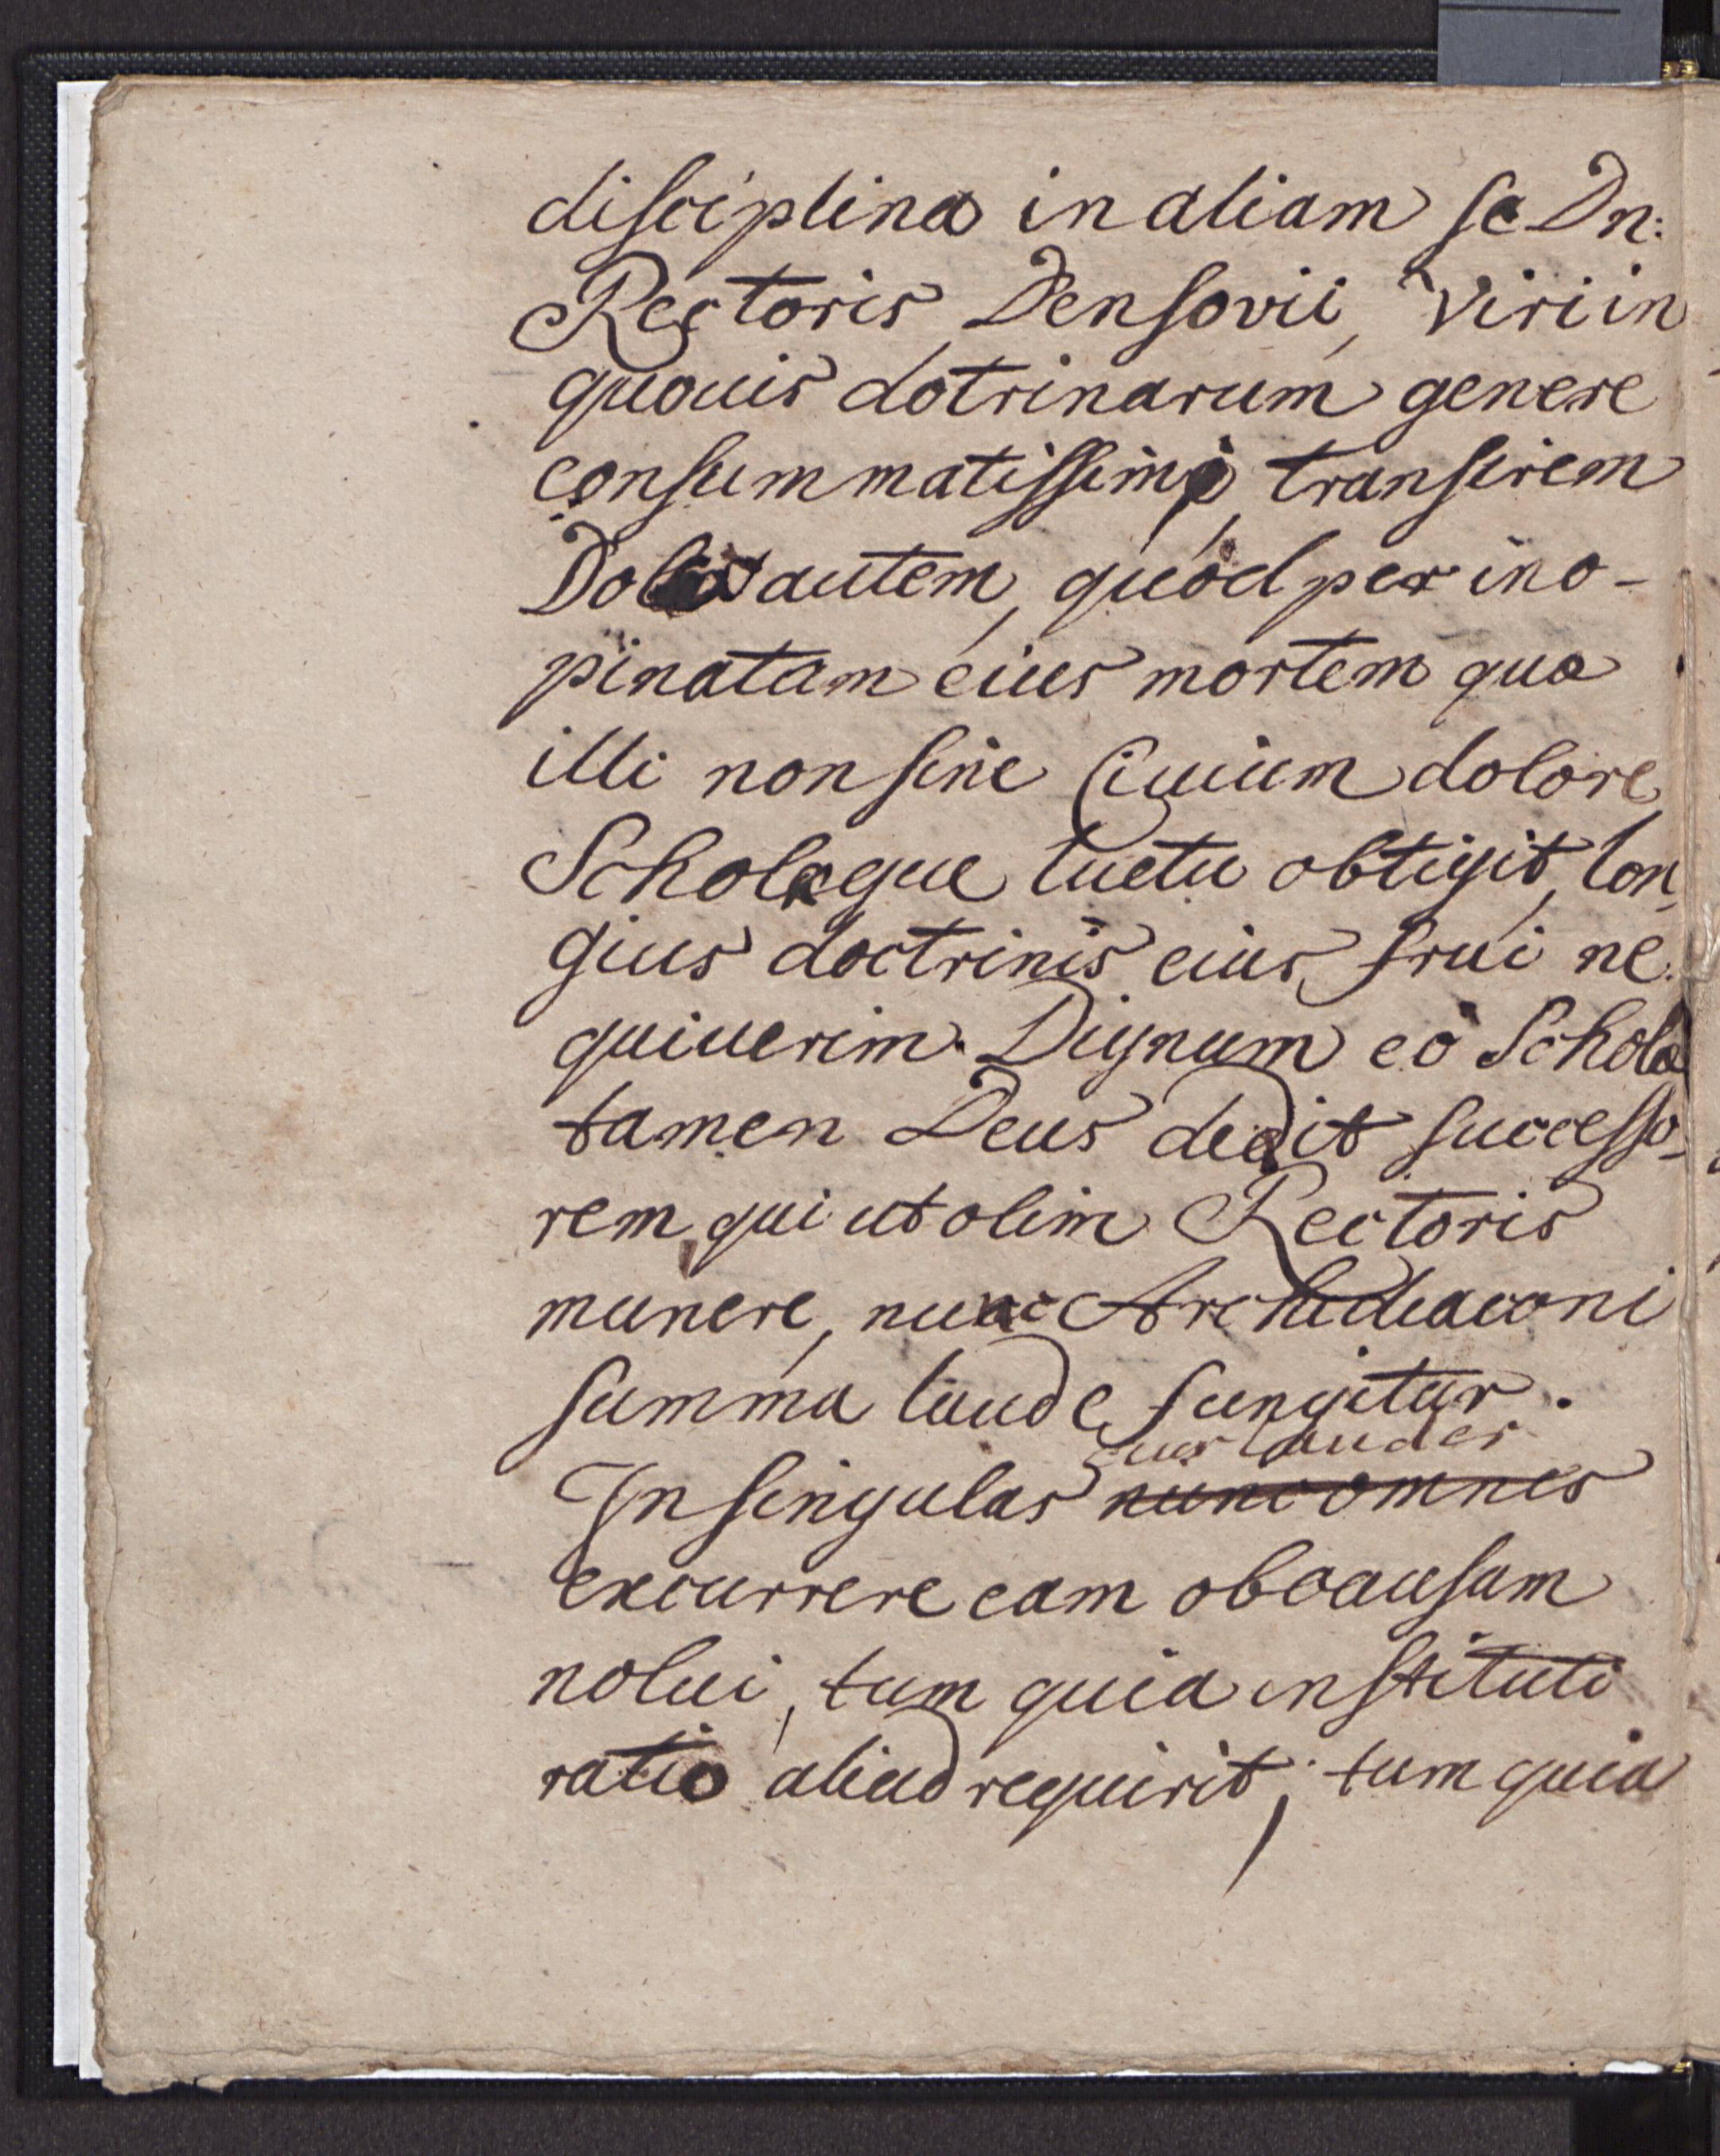 disciplina in aliam sc Dn:
Rectoris Densovii, Viri in
quouis dotrinarum genere
consummatissimi, transirem
autem, quod per ino-
pinatam eius mortem quæ
illi non sine Ciuium dolore
Scholæque luctu obtigit, lon
gius doctrinis eius frui ne
quiuerim. Dignum eò Schola
tamen Deus dedit successo-
rem, qui ut olim Rectoris
munere, nunc Archidiaconi
summa laude fungitur.
eius laudes
In singulas nunc omnes
excurrere eam ob causam
nolui, tum quia instituti
ratio aliud requirit; tum quia